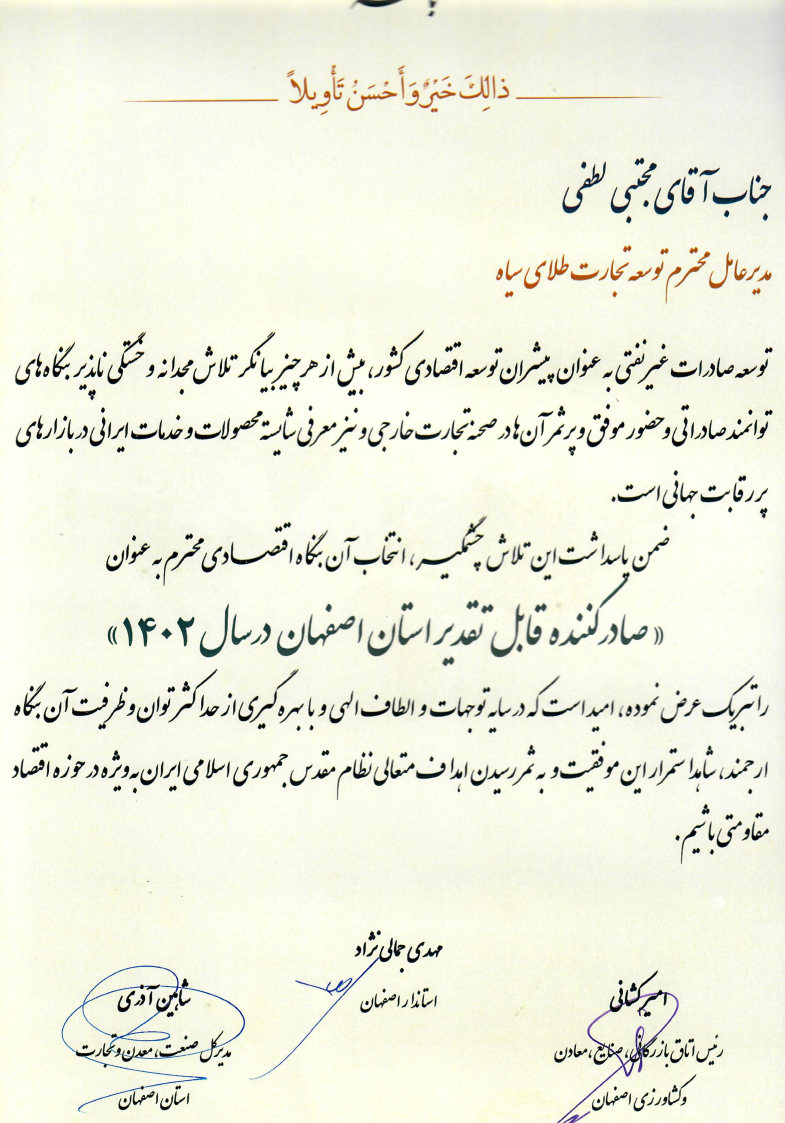 ذَالِكَ خَيْرٌ وَأَحْسَنُ تَأْوِيلاً
جناب آقای مجتبی لطفی
مدیرعامل محترم توسعه تجارت طلای سیاه
توسعه صادرات غیرنفتی به عنوان پیشران توسعه اقتصادی کشور، بیش از هر چیز بیانگر تلاش مجدانه و خستگی ناپذیر بنگاه‌های
توانمند صادراتی و حضور موفق و پرثمر آن‌ها در صحنه تجارت خارجی و نیز معرفی شایسته محصولات و خدمات ایرانی در بازارهای
پررقابت جهانی است.
ضمن پاسداشت این تلاش چشمگیر، انتخاب آن بنگاه اقتصادی محترم به عنوان
«صادرکننده قابل تقدیر استان اصفهان در سال ۱۴۰۲»
را تبریک عرض نموده، امید است که در سایه توجهات و الطاف الهی و با بهره گیری از حداکثر توان و ظرفیت آن بنگاه
ارجمند، شاهد استمرار این موفقیت و به ثمر رسیدن اهداف متعالی نظام مقدس جمهوری اسلامی ایران به ویژه در حوزه اقتصاد
مقاومتی باشیم.
مهدی جمالی نژاد
استاندار اصفهان
امیر کشانی
رئیس اتاق بازرگانی، صنایع، معادن
و کشاورزی اصفهان
شاهین آذری
مدیرکل صنعت، معدن و تجارت
استان اصفهان